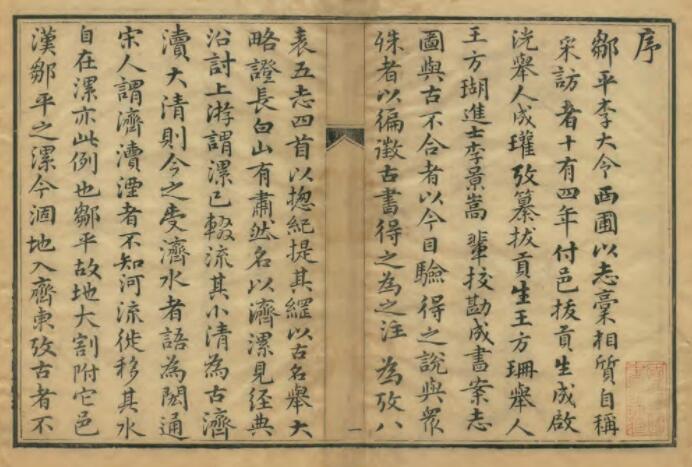 序
鄒平李大令西圃以志稾相質自稱
采訪者十有四年付邑拔貢生成啟
洸舉人成瓘攷纂拔貢生王方珊舉人
王方瑚進士李景嵩輩挍勘成書案志
圖與古不合者以今目驗得之說與眾
殊者以徧徵古書得之為之注為攷八
表五志四首以揔紀提其綱以古名舉大
略證長白山有肅然名以濟漯見經典
沿討上游謂漯已輟流其小清為古濟
瀆大清則今之受濟水者語為閎通
宋人謂濟瀆湮者不知河流徙移其水
自在漯亦此例也鄒平故地大割附它邑
漢鄒平之漯今涸地入齊東攷古者不
一